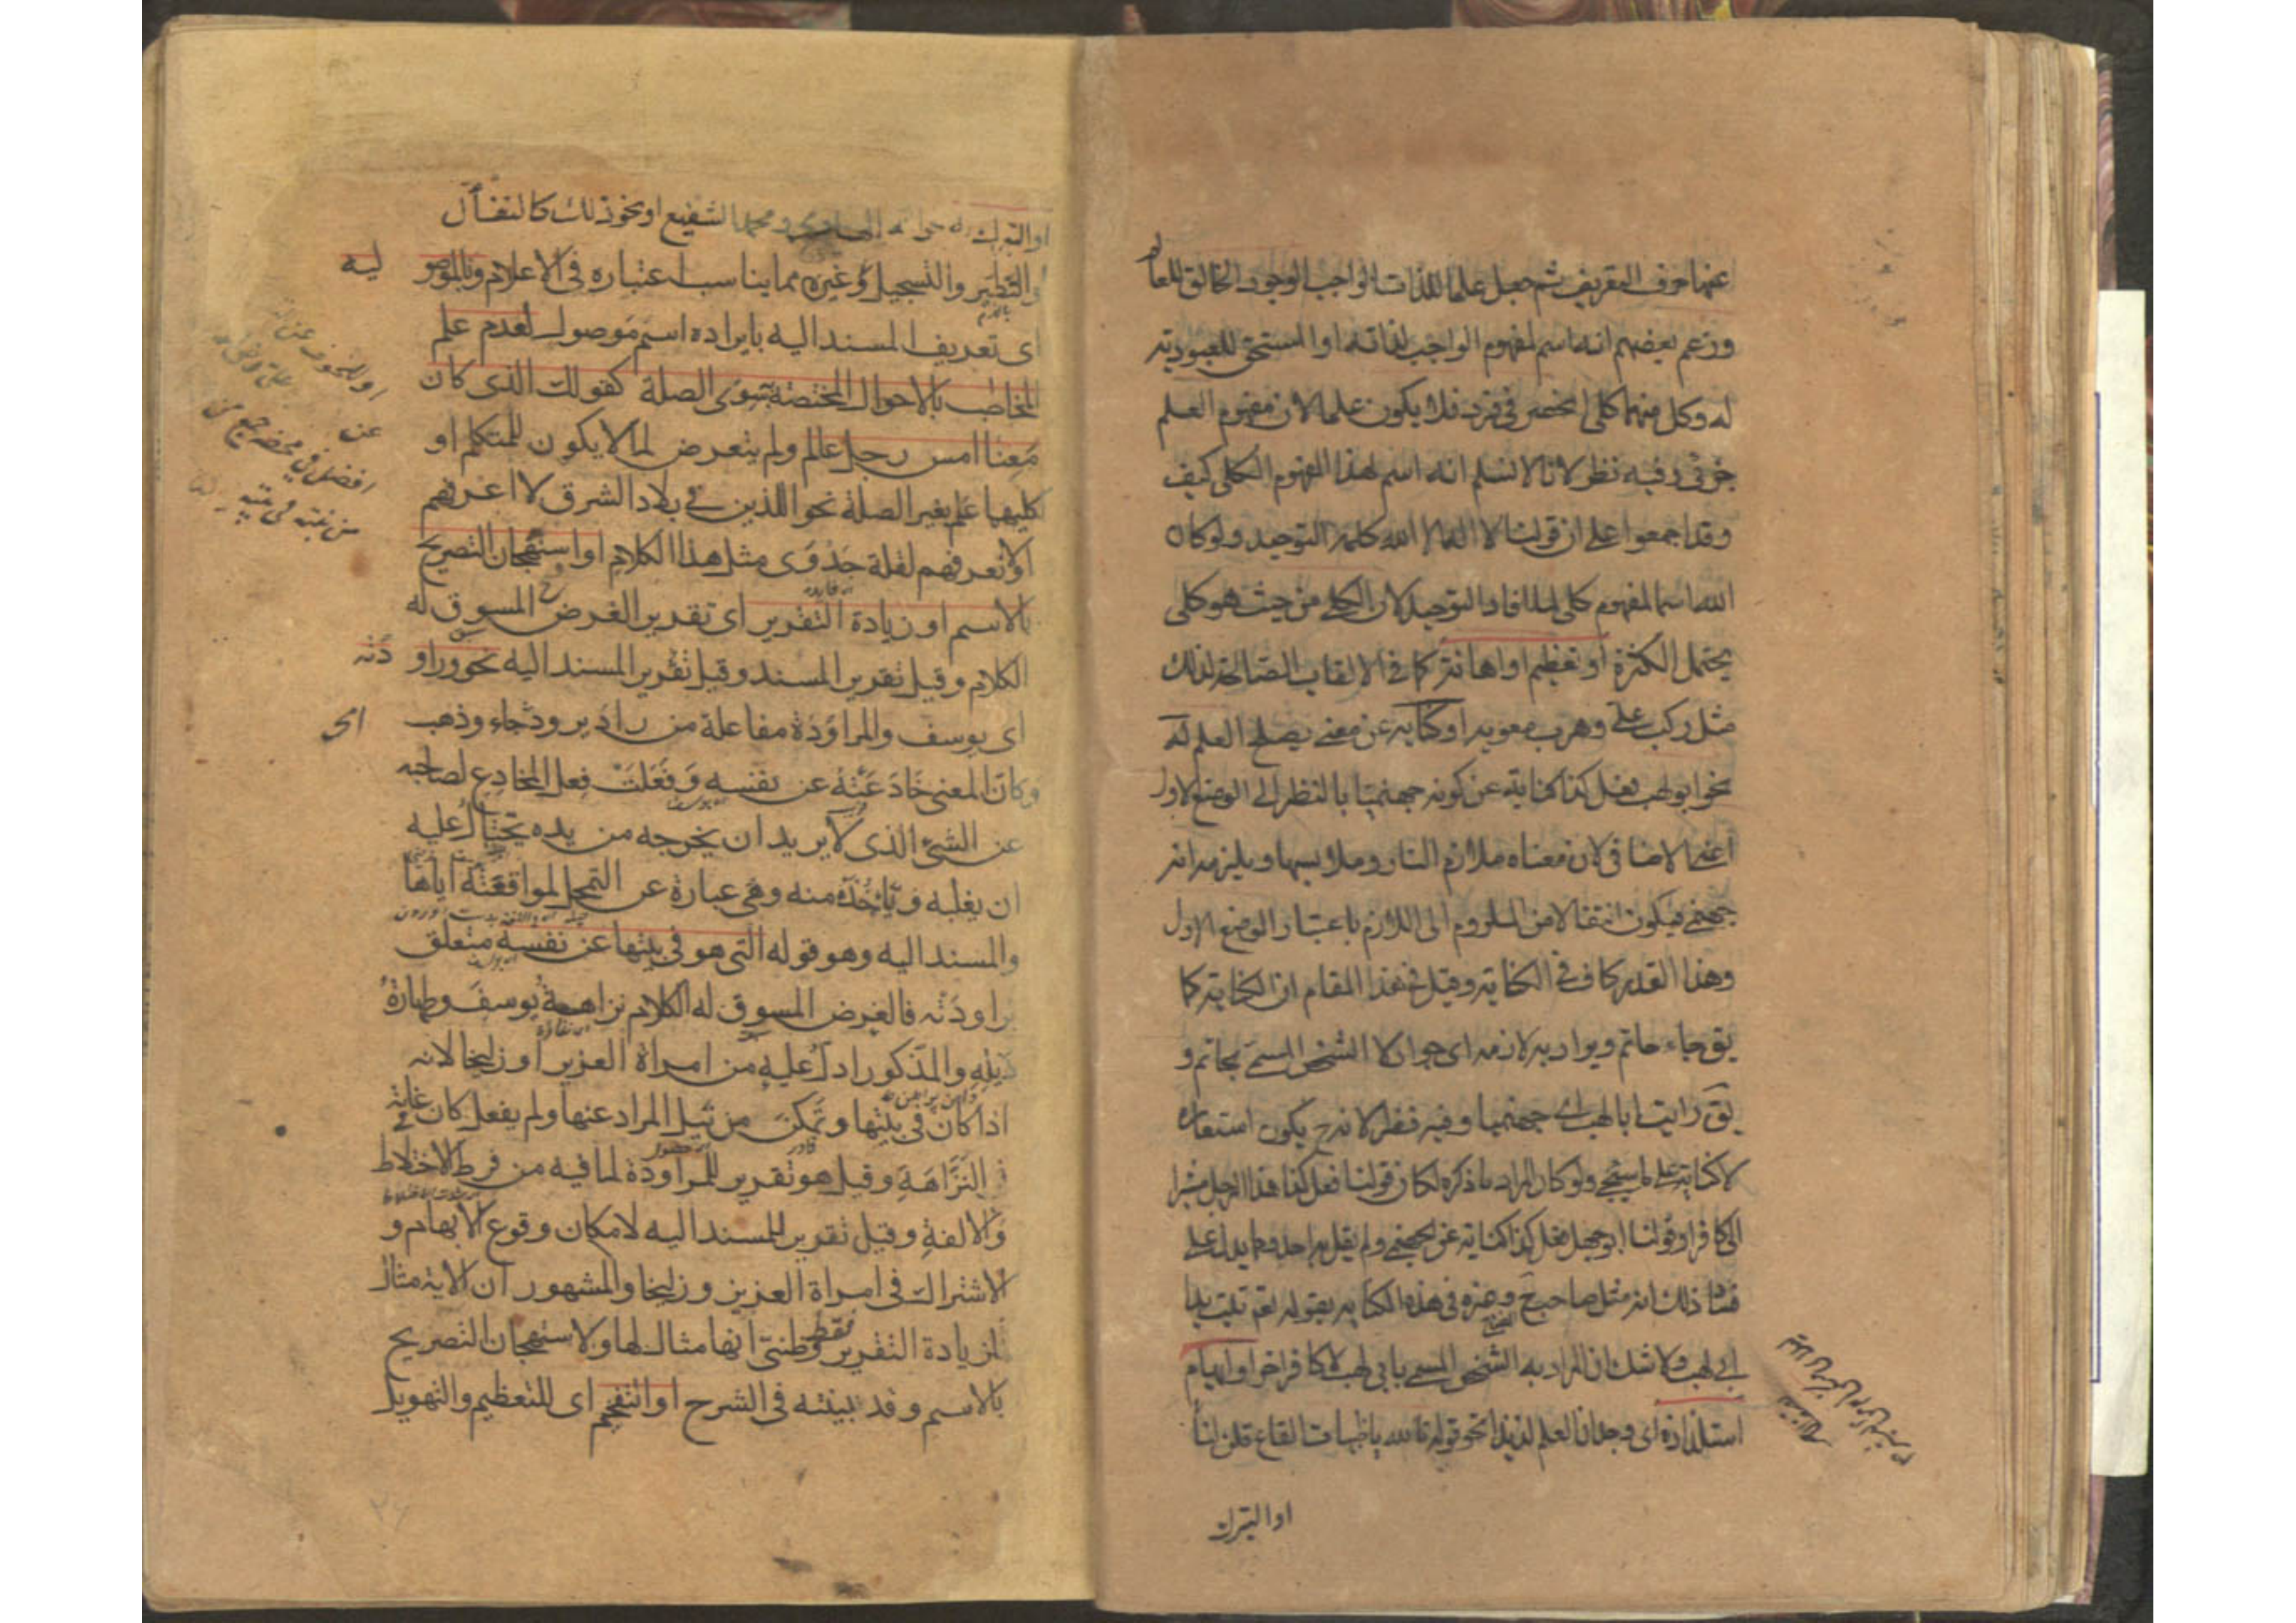 عنها حرف التعريف ثم جعل علما للذات الواجب الوجود الخالق للعالم
وزعم بعضهم انه اسم لمفهوم الواجب لذاته او المستحق للعبودية
له وكل منهما كلي انحصر في فرد فلا يكون علما لان مفهوم العلم
جزئي وفيه نظر لانا لا نسلم انه اسم لهذا المفهوم الكلي كيف
وقد اجمعوا على ان قولنا لا اله الا الله كلمة التوحيد ولو كان
الله اسما لمفهوم كلي لما افاد التوحيد لان الكلي من حيث هو كلي
يحتمل الكثرة او تعظيم او اهانة كما في الالقاب الصالحة لذلك
مثل ركب علي وهرب معوية او كناية عن معنى يصلح العلم له
نحو ابو لهب فعل كذا كناية عن كونه جهنميا بالنظر الى الوضع الاول
اعني الاضافي لان معناه ملازم النار وملابسها ويلزمه انه
جهنمي فيكون انتقالا من الملزوم الى اللازم باعتبار الوضع الاول
وهذا القدر كاف في الكناية وقيل في هذا المقام ان الكناية كما
يق جاء حاتم ويراد به لازمه اى جواد لا الشخص المسمى بحاتم و
يق رايت ابا لهب اى جهنميا وفيه نظر لانه ح يكون استعارة
لا كناية على ما سيجئ ولو كان المراد ما ذكره لكان قولنا فعل كذا هذا الرجل مشيرا
الى كافر او قولنا ابو جهل فعل كذا كناية عن الجهنمي ولم يقل به احد ومما يدل على
فساد ذلك انه مثل صاحب وغيره في هذه الكناية بقوله تعم تبت يدا
ابى لهب ولا شك ان المراد به الشخص المسمى بابي لهب لا كافر اخر او ايهام
استلذاذه اى وجدان العلم لذيذا نحو قوله تالله يا ظبيات القاع قلن لنا
او التبرك
او التبرك به الهادى ومحمد الشفيع او نحو ذلك كالتفأل
والتطير والتسجيل وغيره مما يناسب اعتباره فى الاعلام وبالموصولية
اى تعريف المسند اليه بايراده اسم موصول لعدم علم
المخاطب بالاحوال المختصة به سوى الصلة كقولك الذى كان
معنا امس رجل عالم ولم يتعرض لما لا يكون للمتكلم او
كليهما علم بغير الصلة نحو الذين فى بلاد الشرق لا اعرفهم
او لا نعرفهم لقلة جدوى مثل هذا الكلام او استهجان التصريح
بالاسم او زيادة التقرير اى تقرير الغرض المسوق له
الكلام وقيل تقرير المسند وقيل تقرير المسند اليه نحو وراودته
اى يوسف والمراودة مفاعلة من راد يرود جاء وذهب
وكان المعنى خادعته عن نفسه وفعلت فعل المخادع لصاحبه
عن الشئ الذى لا يريد ان يخرجه من يده يحتال عليه
ان يغلبه وياخذه منه وهى عبارة عن التمحل لمواقعته اياها
والمسند اليه وهو قوله التى هو فى بيتها عن نفسه متعلق
براودته فالغرض المسوق له الكلام نزاهة يوسف وطهارة
ذيله والمذكور ادل عليه من امراة العزيز او زليخا لانه
اذا كان فى بيتها وتمكن من نيل المراد عنها ولم يفعل كان غاية
فى النزاهة وقيل هو تقرير للمراودة لما فيه من فرط الاختلاط
والالفة وقيل تقرير للمسند اليه لامكان وقوع الابهام و
الاشتراك فى امراة العزيز وزليخا والمشهور ان الاية مثال
لزيادة التقرير فقط وظنى انها مثال لها ولاستهجان التصريح
بالاسم وقد بينته فى الشرح او التفخيم اى للتعظيم والتهويل